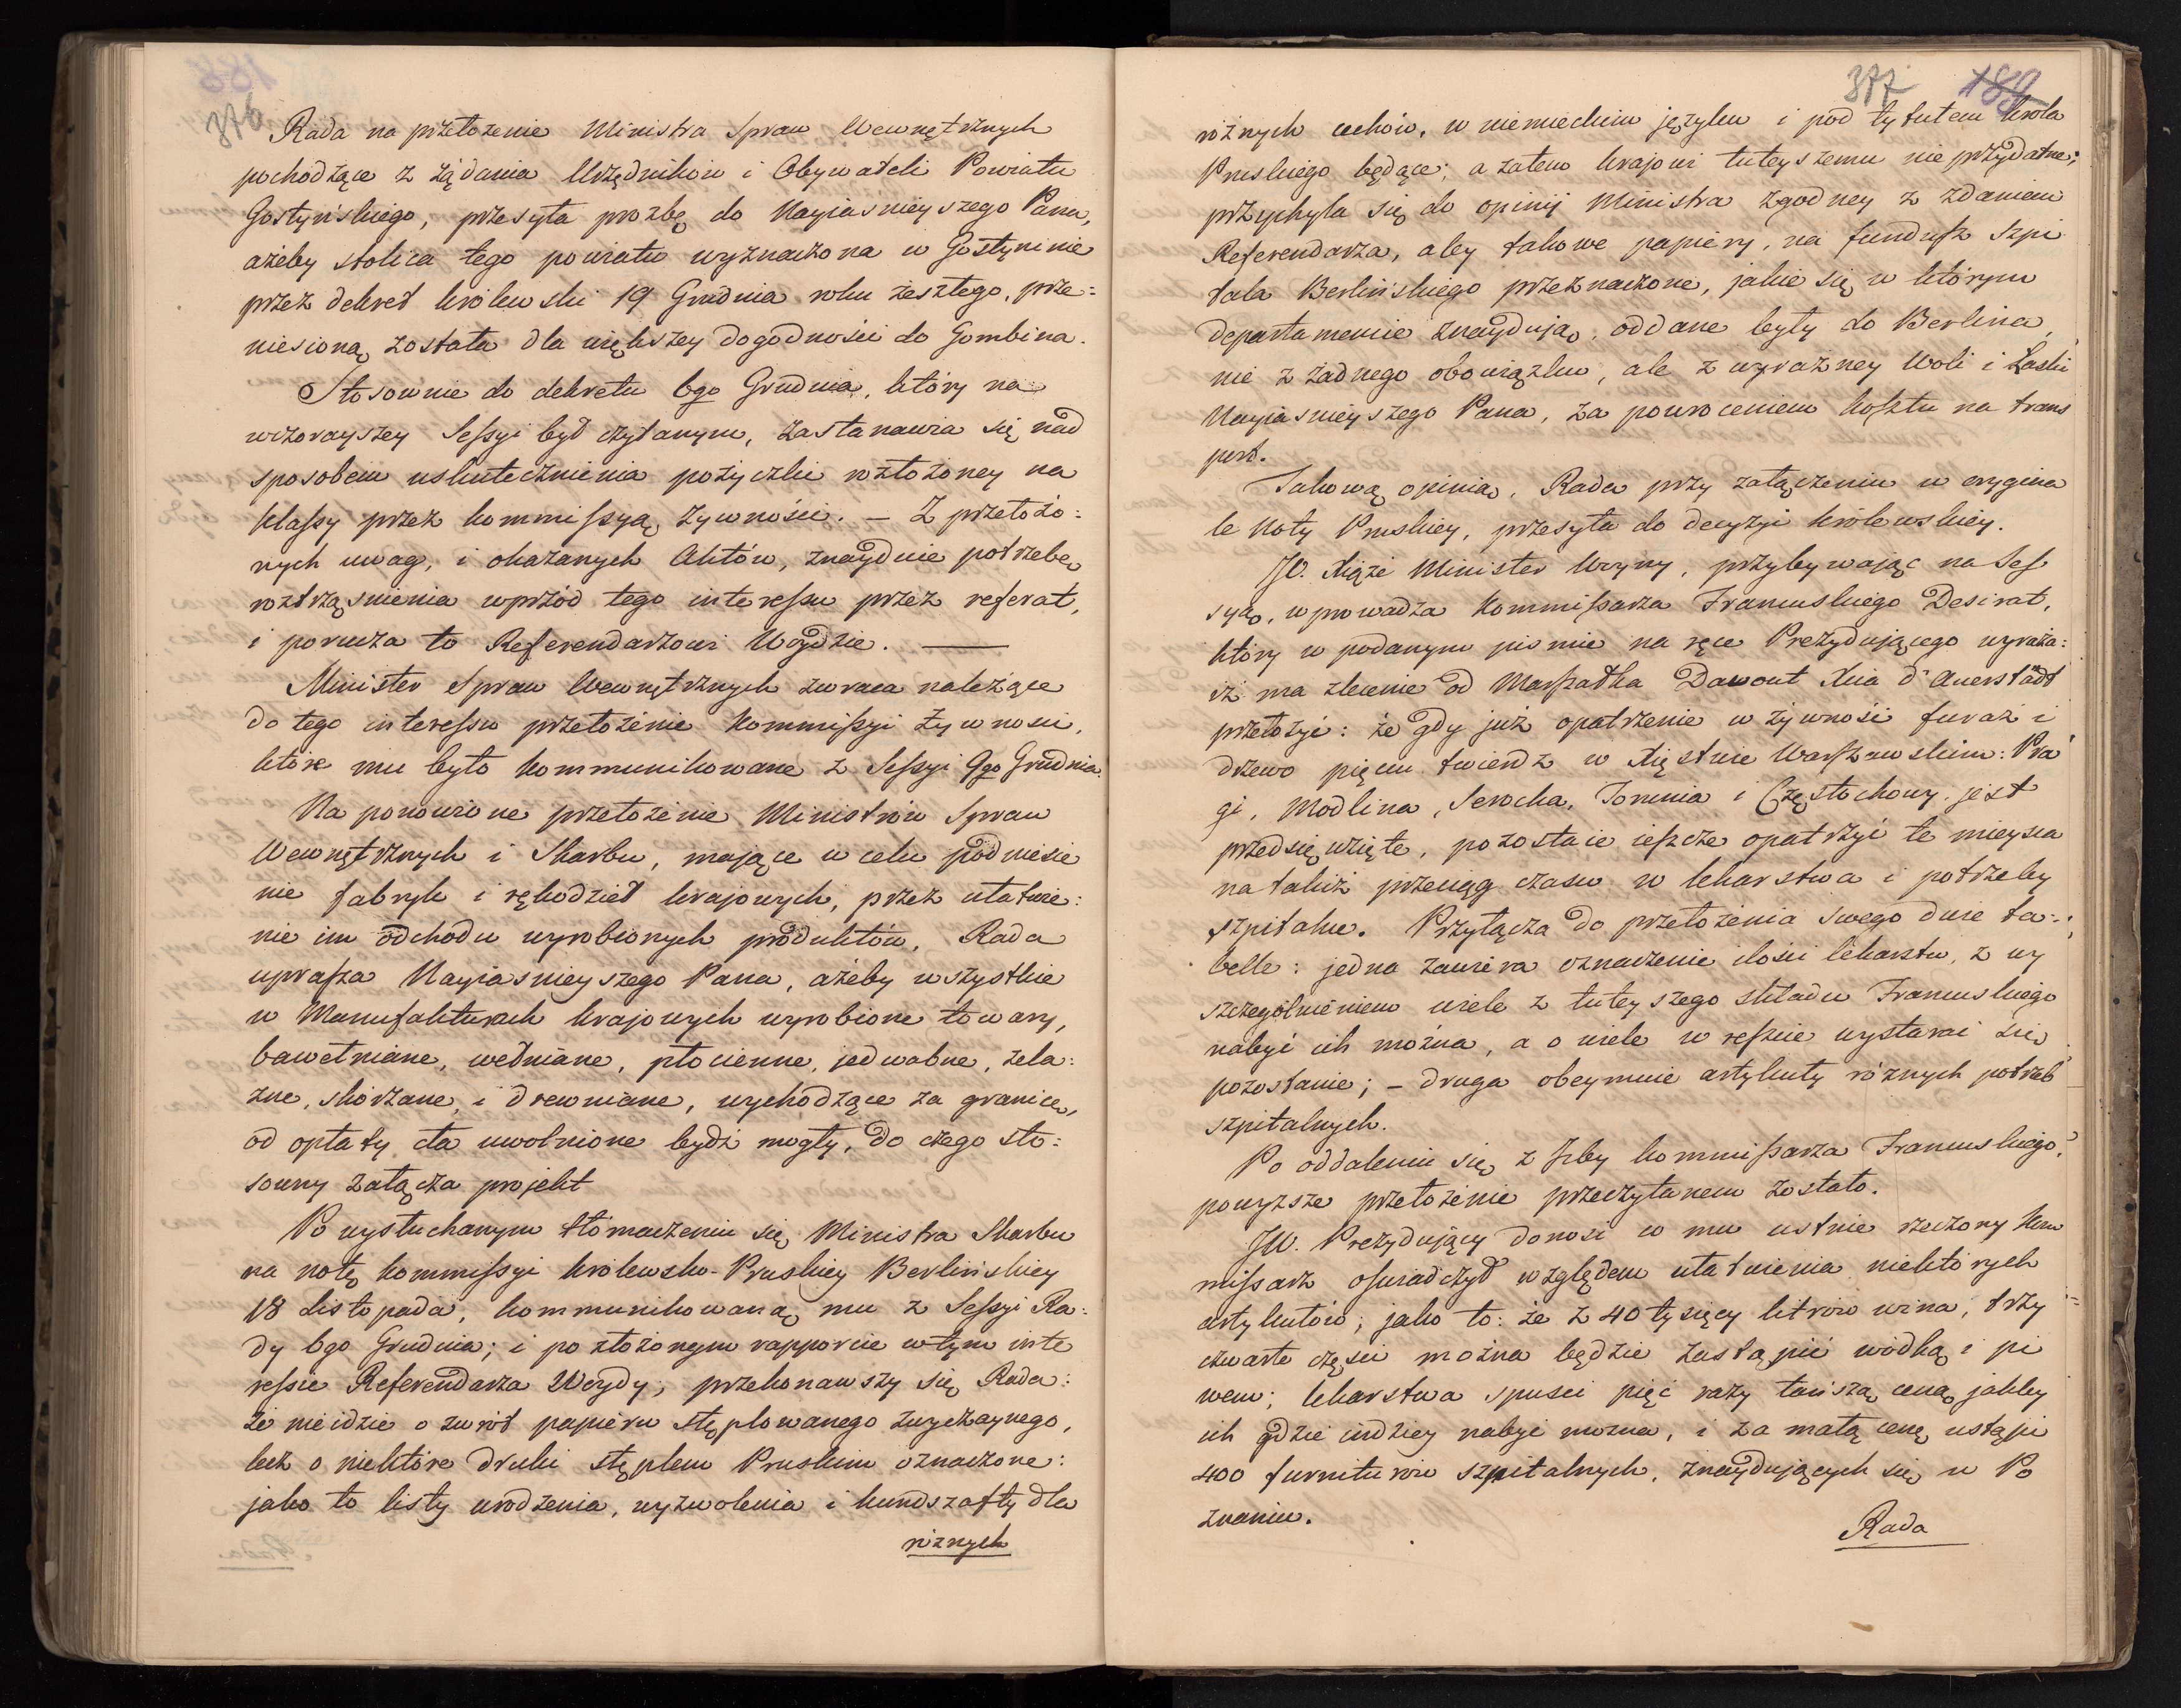 376
Rada na przełożenie Ministra Spraw Wewnętrznych
pochodzące z żądania Urzędników i Obywateli Powiatu
Gostyńskiego, przesyła prozbę do Nayiasnieyszego Pana,
ażeby stolica tego powiatu wyznaczona w Gostyninie
przez dekret królewski 19 Grudnia roku zeszłego, prze=
niesioną została dla większey dogodności do Gombina.
Stosownie do dekretu 6go Grudnia, który na
wczorayszey Sessyi był czytanym, zastanawia się nad
sposobem uskutecznienia pożyczki rozłożoney na
klassy przez kommissyą żywności. – Z przełożo=
nych uwag, i okazanych Aktów, znayduie potrzebę
roztrząsnienia wprzód tego interessu przez referat,
i porucza to Referendarzowi Woydzie. —
Minister Spraw Wewnętrznych zwraca należące
do tego interessu przełożenie Kommissyi Żywnosci,
które mu było kommunikowane z Sessyi 9go Grudnia.
Na ponowione przełożenie Ministrów Spraw
Wewnętrznych i Skarbu, mające w celu podniesie
nie fabryk i rękodzieł krajowych, przez ułatwie=
nie im odchodu wyrobionych produktów, Rada
uprasza Nayiasnieyszego Pana, ażeby wszystkie
w Manufakturach krajowych wyrobione towary,
bawełniane, wełniane, płócienne, jedwabne, żela=
zne, skórzane, i drewniane, wychodzące za granicę,
od opłaty cła uwolnione bydź mogły, do czego sto=
sowny załącza projekt
Po wysłuchanym tłomaczeniu się Ministra Skarbu
na notę kommissyi królewsko-Pruskiey Berlińskiey
18 Listopada, kommunikowaną mu z Sessyi Ra=
dy 6go Grudnia; i po złożonym rapporcie w tym inte
ressie Referendarza Woydy, przekonawszy się Rada:
że nie idzie o zwrot papieru stęplowanego zwyczaynego,
lecz o niektóre druki stęplem Pruskim oznaczone:
jako to listy urodzenia, wyzwolenia i kundszafty dla
różnych
377 189
różnych cechów, w niemieckim języku i pod tytułem króla
Pruskiego będące; a zatem krajowi tuteyszemu nieprzydatne;
przychyla się do opinij Ministra zgodney z zdaniem
Referendarza, aby takowe papiery, na fundusz szpi
tala Berlińskiego przeznaczone, jakie się w którym
departamencie znayduią, oddane były do Berlina,
nie z żadnego obowiązku, ale z wyraźney Woli i Łaski
Nayiasnieyszego Pana, za powroceniem kosztu na trans
port.
Takową opinią, Rada przy załączeniu w orygina
le Noty Pruskiey, przesyła do decyzyi królewskiey.
JO. Xiąże Minister Woyny, przybywając na Ses
syą, wprowadza Kommissarza Francuskiego Desirat,
który w podanym pismie na ręce Prezydującego wyraża:
iż ma zlecenie od Marszałka Davout Xcia d'Auerstädt
przełożyć: że gdy już opatrzenie w żywność furaż i
drzewo pięciu twierdz w Xięstwie Warszawskim: Pra
gi, Modlina, Serocka, Torunia i Częstochowy jest
przedsięwzięte, pozostaie ieszcze opatrzyć te mieysca
na takiż przeciąg czasu w lekarstwa i potrzeby
szpitalne. Przyłącza do przełożenia swego dwie ta=
belle: jedna zawiera oznaczenie ilości lekarstw, z wy
szczególnieniem wiele z tuteyszego składu Francuskiego
nabyć ich można, a o wiele w reszcie wystarać się
pozostanie; – druga obeymuie artykuły różnych potrzeb
szpitalnych.
Po oddaleniu się z Izby kommissarza Francuskiego,
powyższe przełożenie przeczytanem zostało.
JW. Prezydujący donosi co mu ustnie rzeczony Kom
missarz oswiadczył względem ułatwienia niektórych
artykułów; jako to: że z 40 tysięcy litrów wina, trzy
czwarte częsci można będzie zastąpić wódką i pi
wem; lekarstwa spusci pięć razy tańszą ceną, jakby
ich gdzie indziey nabyć można, i za małą cenę ustąpi
400 furniturów szpitalnych, znaydujących się w Po
znaniu.
Rada